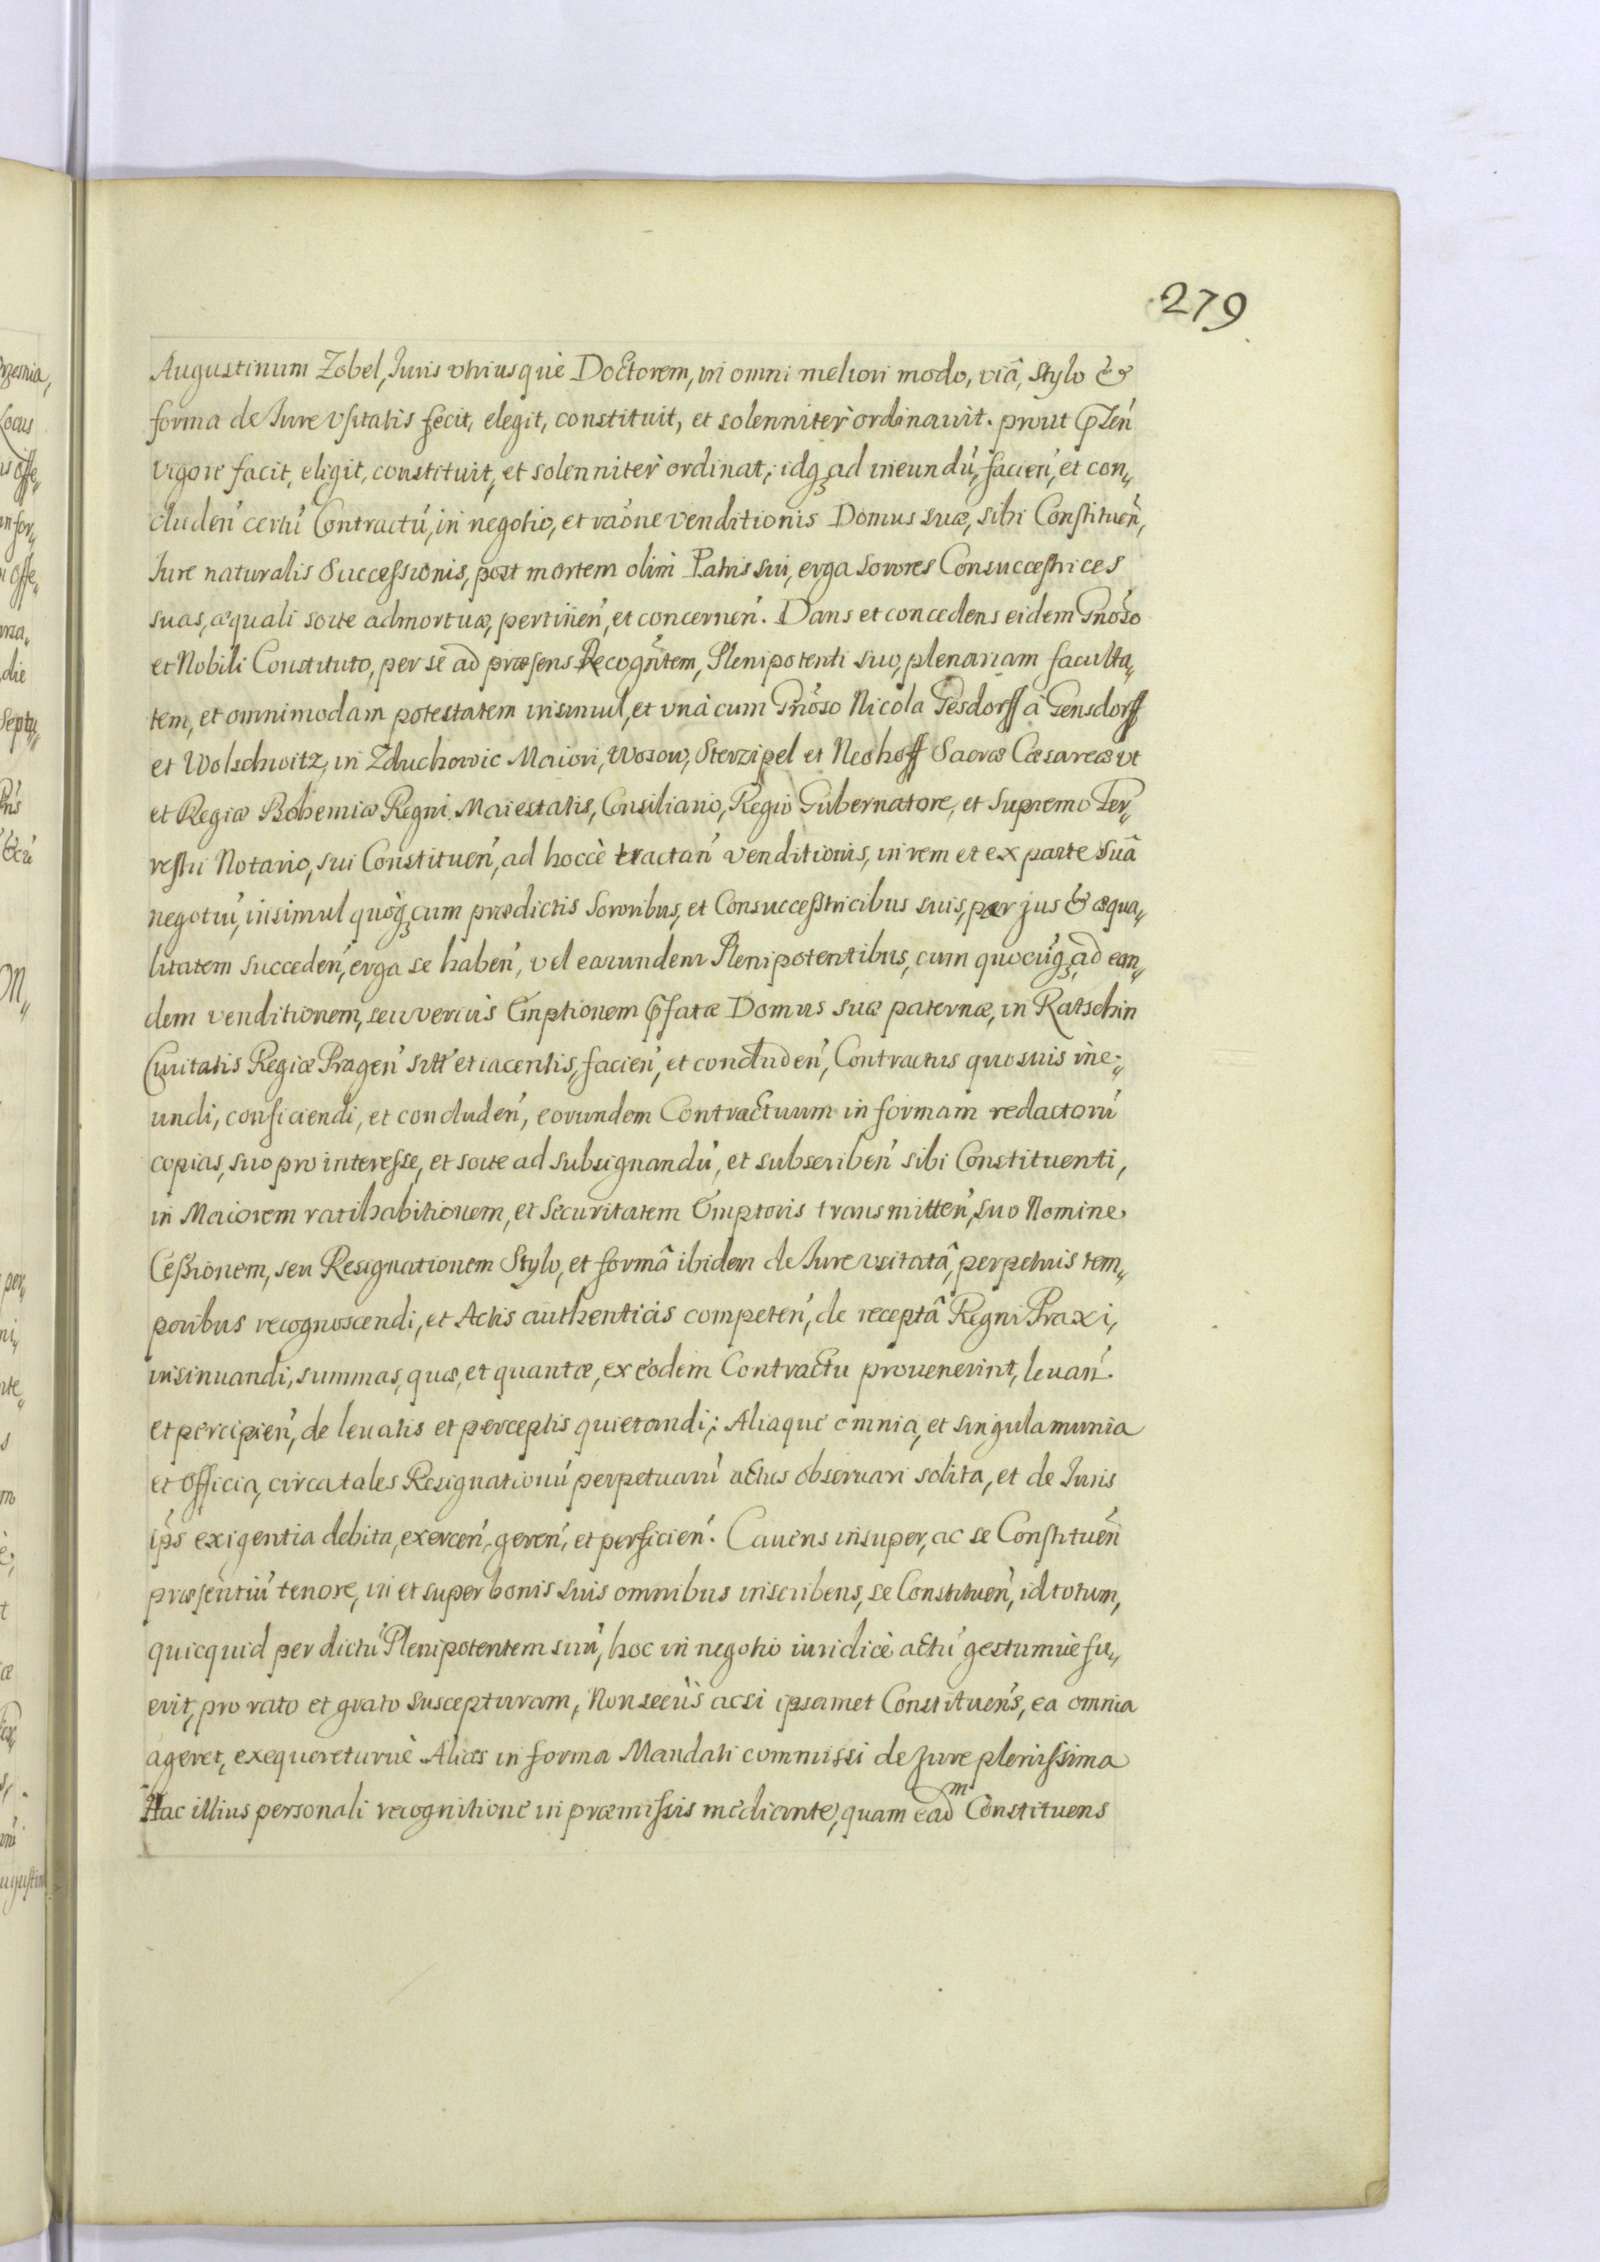 279
Augustinum Zobel, Juris vtriusquè Doctorem, in omni meliori modo, viâ, stylo &
forma de Jure vsitatis fecit, elegit, constituit, et solenniter ordinauit. prout
vigore facit, eligit, constituit, et solenniter ordinat; idq; ad ineundū, facien̄, et con„
cluden̄ certū Contractū, in negotio, et rāone venditionis Domus suæ, sibi Constituen̄,
Jure naturalis Successionis, post mortem olim Patris sui, erga sorores Consuccestrices
suas, æquali sorte admortuæ, pertinen̄, et concernen̄. Dans et concedens eidem Gnōso
et Nobili Constituto, per se ad præsens Recogn̄tem, Plenipotenti suo, plenariam faculta„
tem, et omnimodam potestatem insimul, et vnà cum Gn̄oso Nicola Gesdorff à Gensdorff
et Wolschwitz, in Zduchowic Maiori, Wosow, Sterzipel et Neohoff Sacræ Cæsareæ vt
et Regiæ Bohemiæ Regni Maiestatis, Consiliario, Regio Gubernatore, et Supremo Ter„
restri Notario, sui Constituen̄, ad hoccè tractan̄ venditionis, in rem et ex parte suâ
negotiū, insimul quoq; cum prædictis Sororibus, et Consuccesstricibus suis, per jus & æqua„
litatem succeden̄, erga se haben̄, vel earundem Plenipotentibus, cum quocūq; ad ean„
dem venditionem, seu veriùs Emptionem p̄fatæ Domus suæ paternæ, in Ratschin
Ciuitatis Regiæ Pragen̄ sitt̄ et iacentis, facien̄, et concluden̄, Contractus quosuis ine„
undi, conficiendi, et concluden̄, eorundem Contractuum in formam redactorū
copias, suo pro interesse, et sorte ad subsignandū, et subscriben̄ sibi Constituenti,
in Maiorem ratihabitionem, et securitatem Emptoris transmitten̄, suo Nomine
Cessionem, seu Resignationem Stylo, et formâ ibidem de Jure vsitatâ, perpetuis tem„
poribus recognoscendi, et Actis authenticis competen̄, de receptâ Regni Praxi,
insinuandi, summas, quæ, et quantæ, ex eodem Contractu prouenerint, leuan̄.
et percipien̄, de leuatis et perceptis quietandi; Aliaque omnia, et singula munia
et officia, circa tales Resignationū perpetuarū actus obseruari solita, et de Juris
ip̄s exigentia debita, exercen̄, geren̄, et perficien̄. Cauens insuper, ac se Constituen̄
præsentiū tenore, in et super bonis suis omnibus inscribens, se Constituen̄, id totum,
quicquid per dictū Plenipotentem suū, hoc in negotio iuridicè actū gestumuè fu„
erit, pro rato et grato suscepturam, Non secùs acsi ipsamet Constituens, ea omnia
ageret, exequereturuè Alias in forma Mandati commissi de Jure plenissima
Hac illius personali recognitione in præmissis mediante, quam eadm Constituens